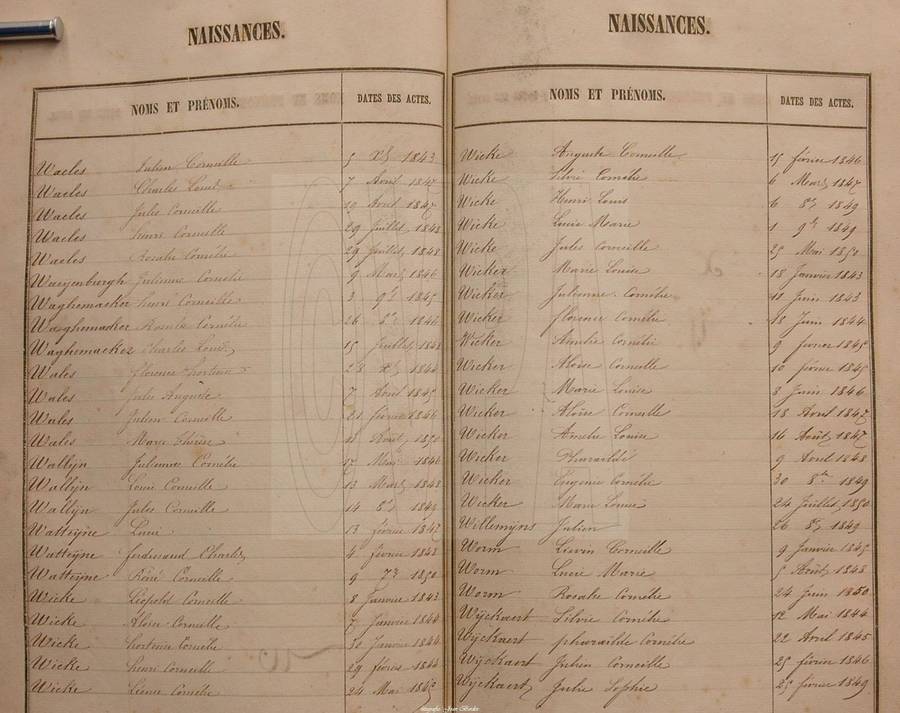 NAISSANCES.
NOMS ET PRÉNOMS. DATES DES ACTES.
Waeles Julien Corneille 5 Xb 1843
Waeles Charles Louis 7 Avril 1847
Waeles Jules Corneille 10 Avril 1847
Waeles henri Corneille 29 Juillet 1848
Waeles Rosalie Cornélie 29 Juillet 1848
Waeyenburgh Julienne Cornelie 9 Mars 1846
Waghemacker henri Corneille 3 9b 1845
Waeghemacker Cornélie 26 1846
Waghemacker Charles Louis 15 Juillet 1848
Wales florence hortense 28 Xb 1844
Wales Jules Auguste 7 Avril 1845
Wales Julien Corneille 21 février 1846
Wales Marie Thérèse Août 1850
Wallijn Julienne Cornélie 17 Mai 1846
Wallijn Louis Corneille 13 Mars 1848
Wallijn Jules Corneille 14 1849
Watteijne Louis 13 février 1847
Watteijne ferdinand Charles 4 février 1848
Watteijne Réné Corneille 9 7b 1850
Wicke Léopold Corneille 8 Janvier 1843
Wicke Aloise Corneille 7 Janvier 1844
Wicke hortense Cornélie 30 Janvier 1844
Wicke henri Corneille 29 février 1844
Wicke Léonie Cornélie 24 Mai 1845
NAISSANCES.
NOMS ET PRÉNOMS. DATES DES ACTES.
Wicke Auguste Corneille 15 février 1846
Wicke Silvie Cornélie 6 Mars 1847
Wicke Henri Louis 6 8b 1849
Wicke Lucie Marie 1 9b 1849
Wicke Jules Corneille 25 Mai 1850
Wicker Marie Louise 18 Janvier 1843
Wicker Julienne Cornélie 18 Juin 1843
Wicker florence Cornélie 18 Juin 1844
Wicker Amélie Cornélie 9 février 1845
Wicker Aloise Corneille 10 février 1845
Wicker Marie Louise 8 Juin 1846
Wicker Aloise Corneille 18 Avril 1847
Wicker Amelie Louise 16 Août 1847
Wicker Pharaïlde 9 Avril 1848
Wicker Eugenie Cornélie 30 8b 1849
Wicker Marie Louise 24 Juillet 1850
Willemijns Julien 26 8b 1849
Worm Lievin Corneille 9 Janvier 1845
Worm Lucie Marie 5 Août 1848
Worm Rosalie Cornélie 24 Juin 1850
Wijckaert Silvie Cornélie 12 Mai 1844
Wijckaert pharaïlde Cornélie 22 Avril 1845
Wijckaert Julien Corneille 25 février 1846
Wijckaert Julie Sophie 25 février 1849